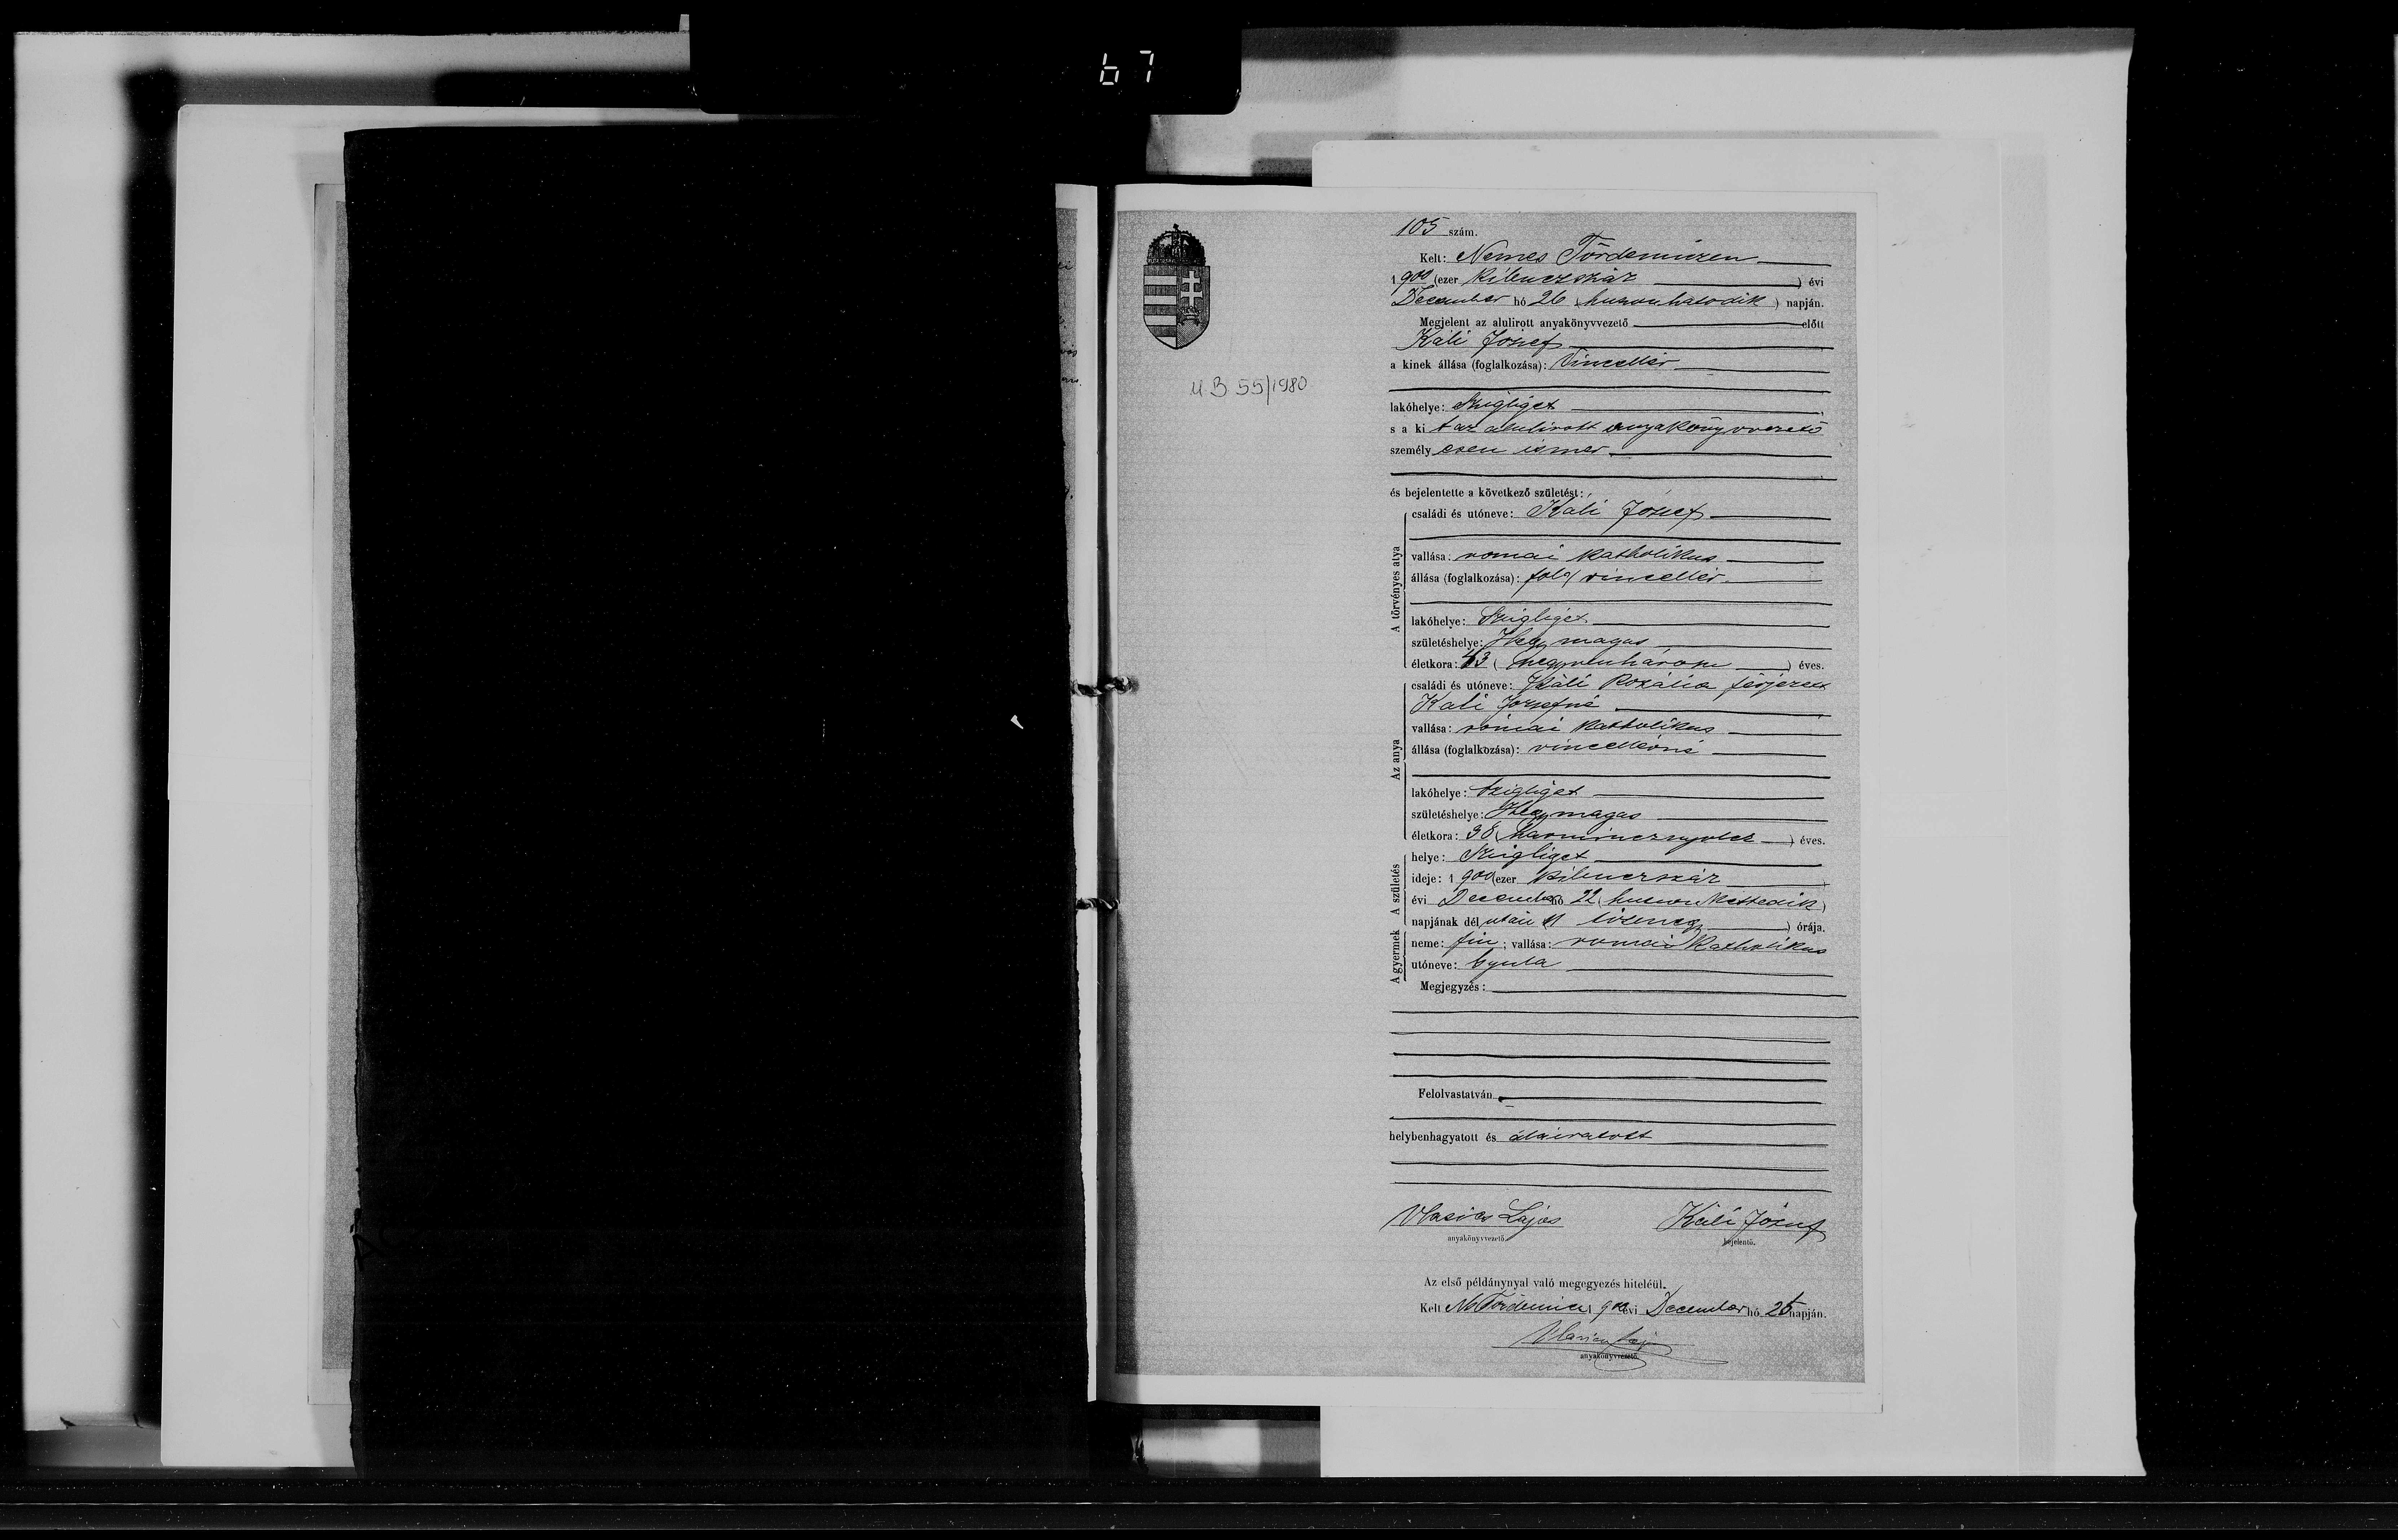 67
105 szám.
Kelt: Nemes Tördemiczen
1900 (ezer kilenczszáz) évi
December hó 26 (huszonhatodik) napján.
Megjelent az alulirott anyakönyvvezető előtt
Káli József
a kinek állása (foglalkozása): Vinczellér
U.B 55/1980
lakóhelye: Szigliget
s a ki t az alulirott anyakönyvvezető
személyesen ismer.
és bejelentette a következő születést:
A törvényes atya
családi és utóneve: Káli József
vallása: római katholikus
állása (foglalkozása): vinczellér
lakóhelye: Szigliget
születéshelye: Hegymagas
életkora: 43 (negyvenhárom) éves.
Az anya
családi és utóneve: Káli Rozália férjezett
Káli Józsefné
vallása: római katholikus
állása (foglalkozása): vinczellérné
lakóhelye: Szigliget
születéshelye: Hegymagas
életkora: 38 (harmincznyolcz) éves.
A születés
helye: Szigliget
ideje: 1900 (ezer kilenczszáz)
évi December hó 22 (huszonkettedik)
napjának dél után 11 tizenegy) órája.
A gyermek
neme: fiu; vallása: római katholikus
utóneve: Gyula
Megjegyzés:
Felolvastatván
helybenhagyatott és aláiratott
Vlasics Lajos
anyakönyvvezető.
Káli József
bejelentő.
Az első példánynyal való megegyezés hiteléül.
Kelt N Tördemicz 1900 évi December hó 26 napján.
Vlasics Laj
anyakönyvvezető.